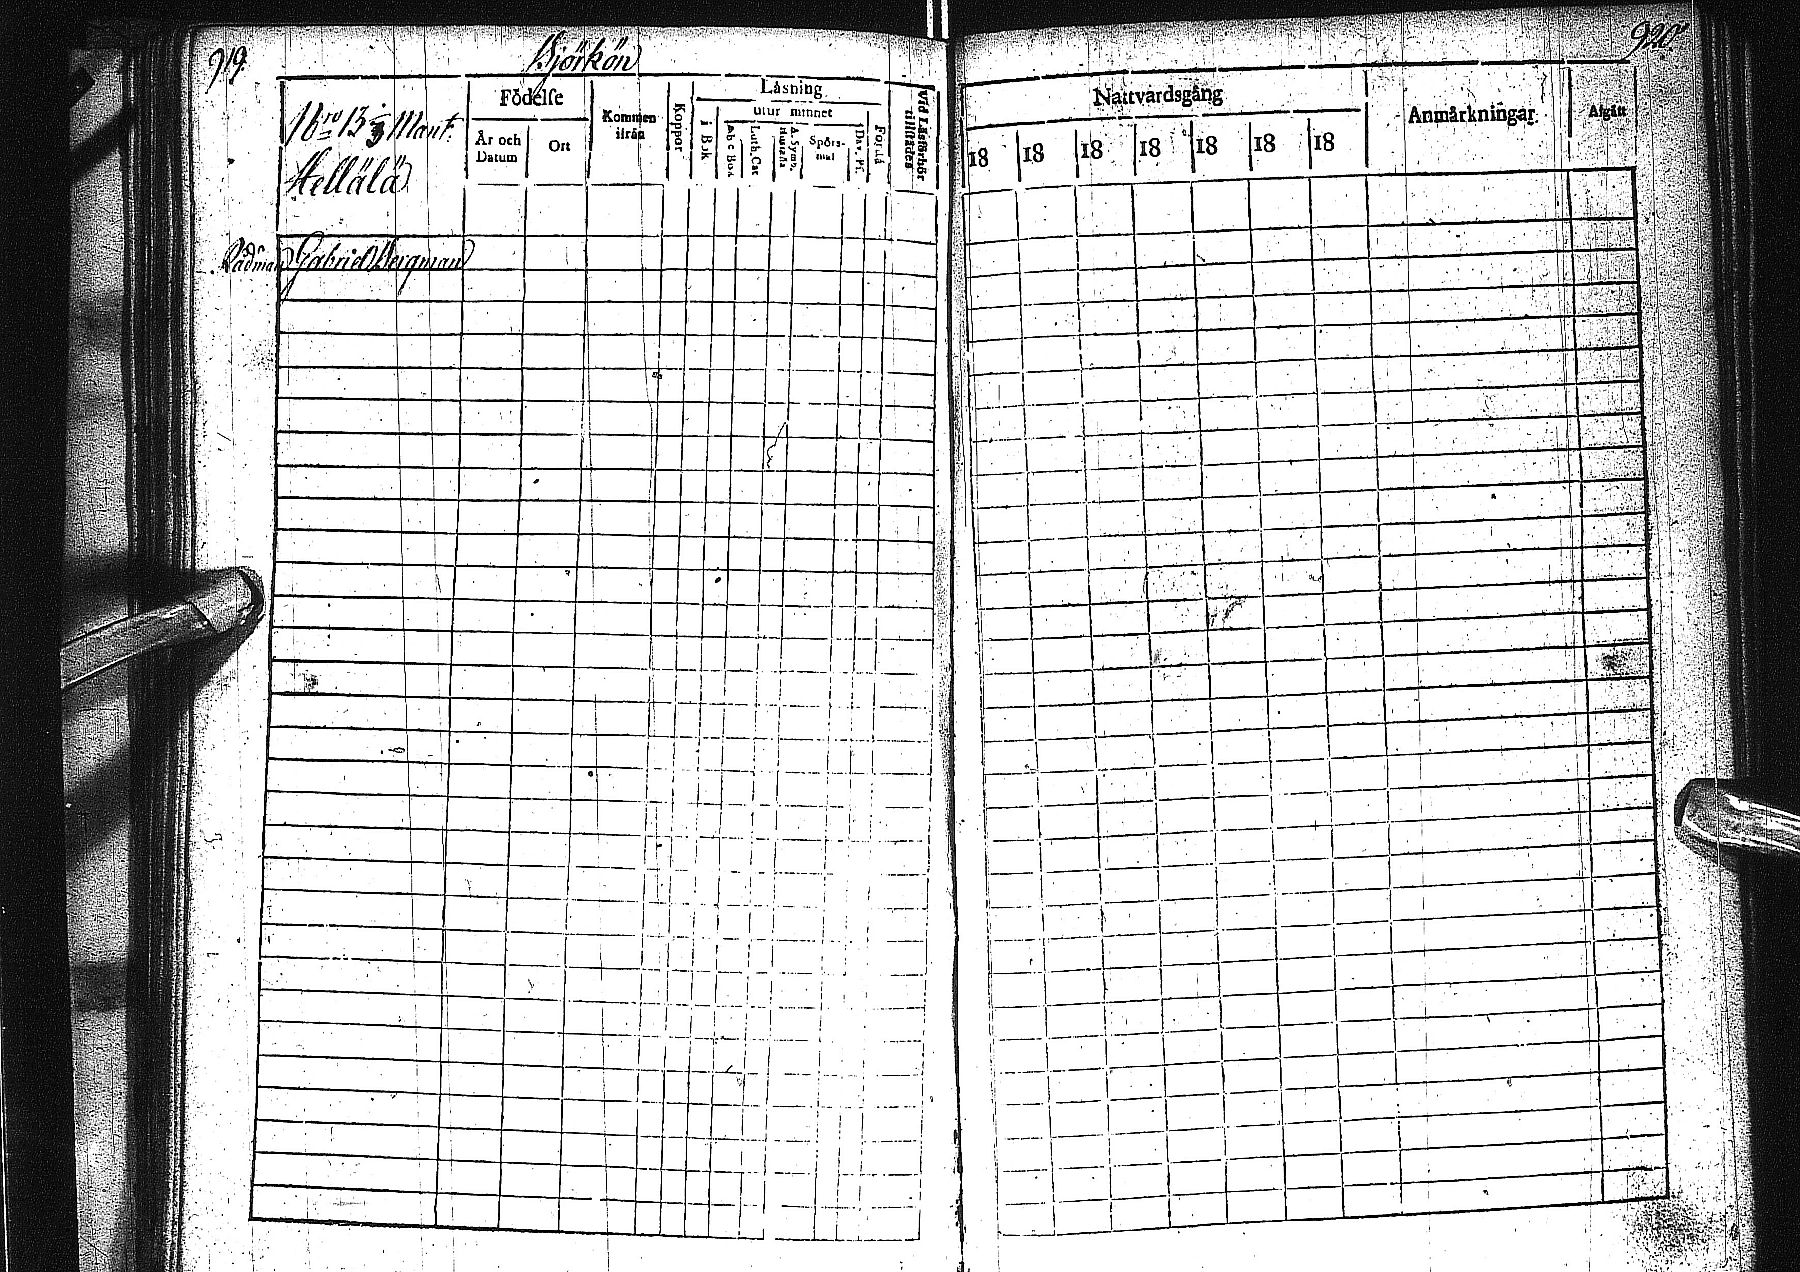 919.
Björkön
920.
N:ro 13 Mant.
Hellälä
Födelse
År och Datum
Ort
Kommen ifrån
Koppor
Läsning
utur minnet
i Bok
Abc Bok
Luth. Cat
Spörs-
mal
Dav. Ps.
Förstå
Vid Läsförhör tillstädes
Nattvardsgång
18 18 18 18 18 18 18
Anmärkningar
Afgått
Rådman Gabriel Bergman